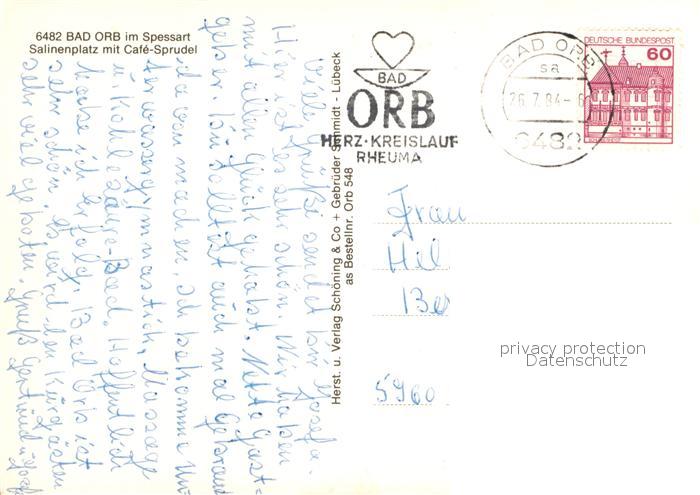 6482 BAD ORB im Spessart
Salinenplatz mit Café-Sprudel
Viele Grüße sendet Dir Josefa.
Hier ist es sehr schön. Wir haben
mit allem Glück gehabt. Nette Gast-
geber
davon machen. Ich bekomme Un-
terwassergymnastik, Massage
u. Kohlesäure-Bad. Hoffentlich
habe ich Erfolg. Bad Orb ist
sehr schön. Es wird den Kurgästen
sehr viel geboten. Gruß Gertrud u. Josef
Herst. u. Verlag Schöning & Co + Gebrüder Schmidt - Lübeck
as Bestellnr. Orb 548
BAD
ORB
HERZ·KREISLAUF
RHEUMA
BAD ORB
sa
26.7.84-
6482
DEUTSCHE BUNDESPOST
60
Frau
Hel
Ber
5960
privacy protection
Datenschutz